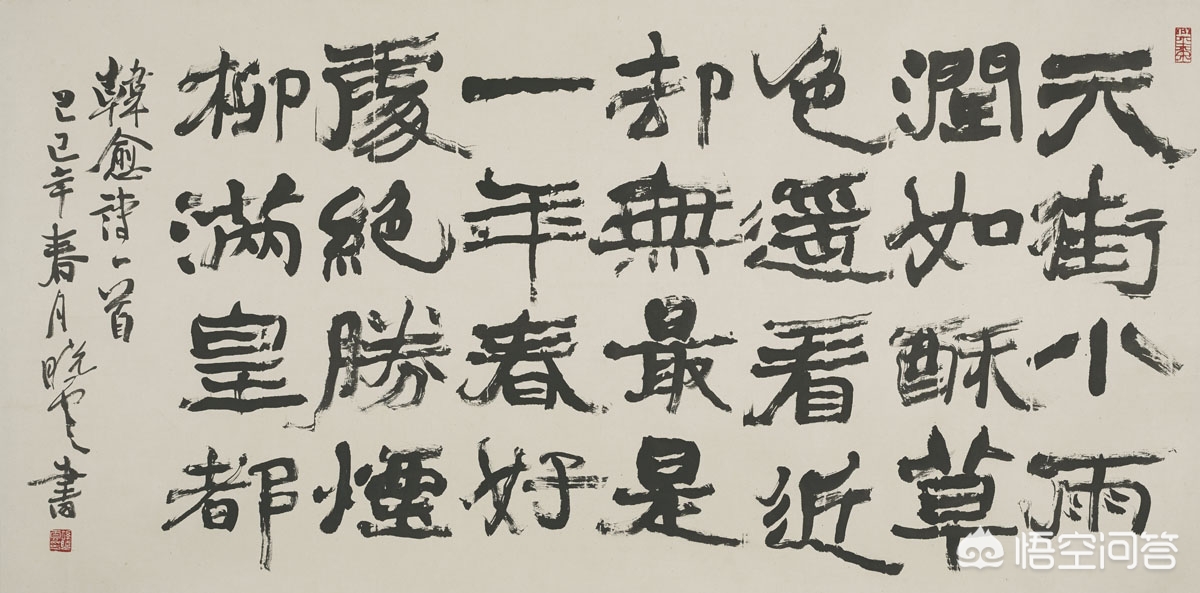 天街小雨
潤如酥草
色遙看近
却無最是
一年春好
處絕勝煙
柳滿皇都
韓愈詩一首
己巳年春月曉雲書
悟空问答